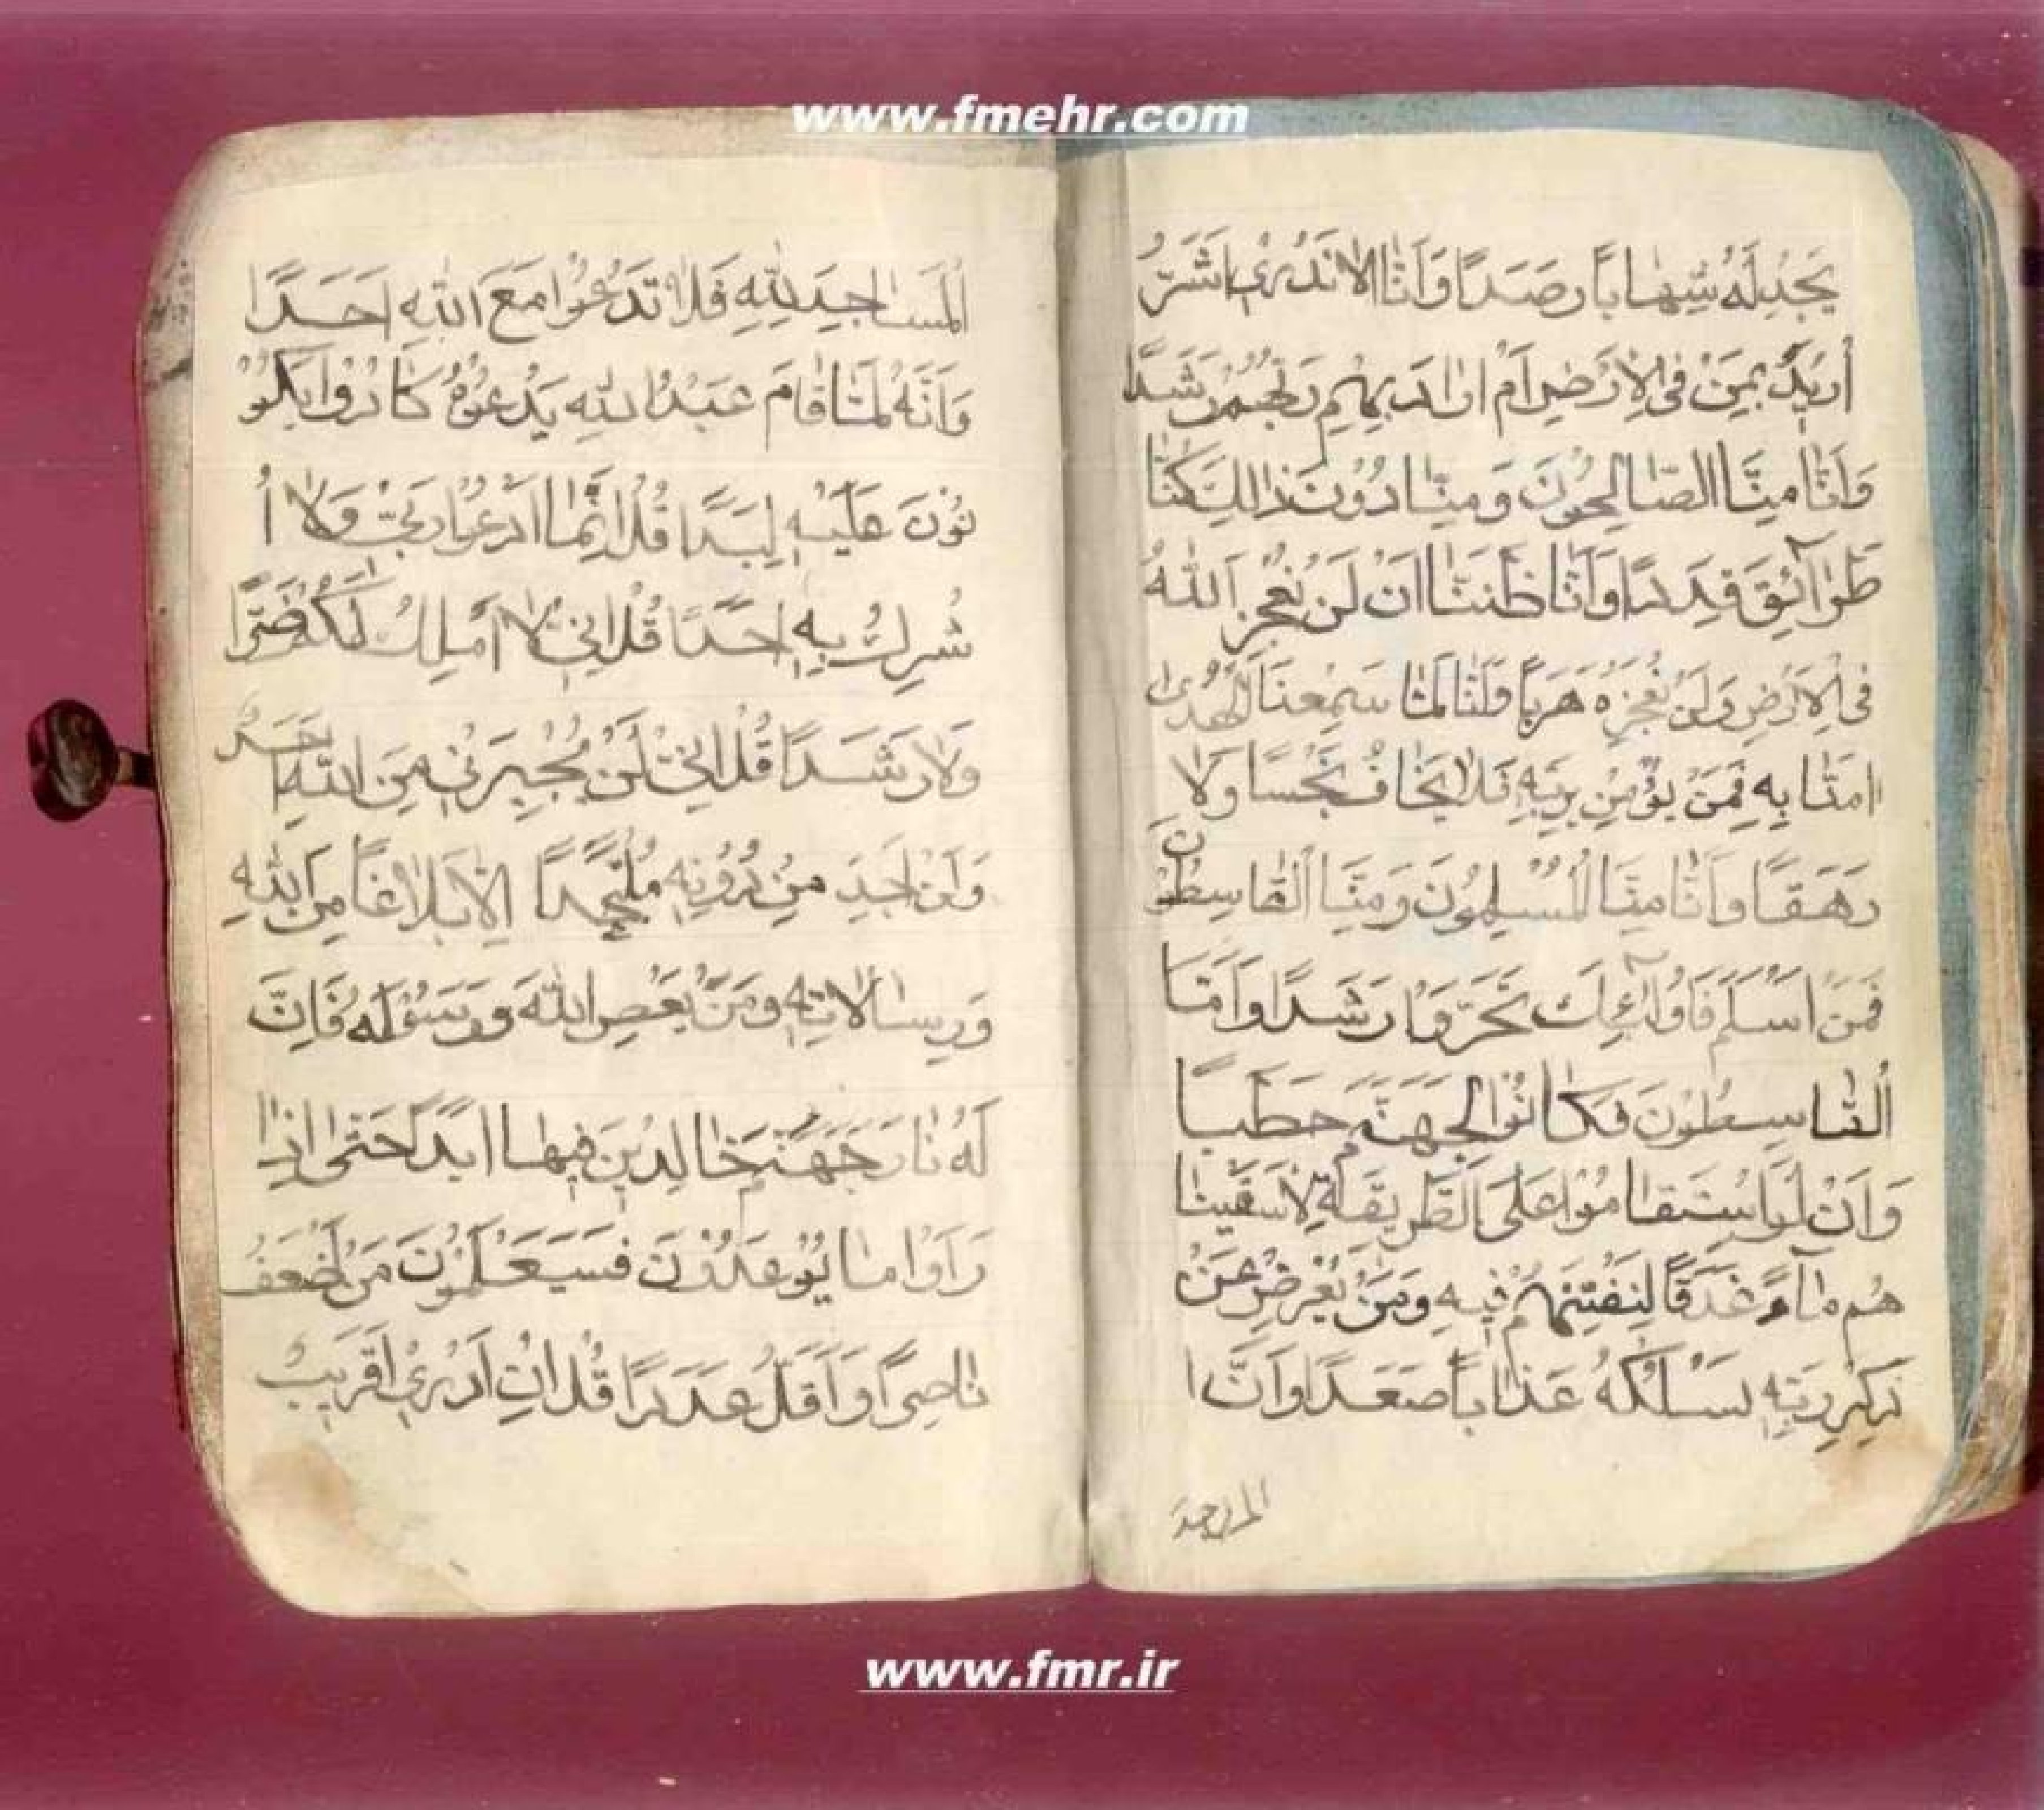 www.fmehr.com
يَجِدْ لَهُ شِهَابًا رَصَدًا وَأَنَّا لَا نَدْرِي أَشَرٌّ
أُرِيدَ بِمَنْ فِي الْأَرْضِ أَمْ أَرَادَ بِهِمْ رَبُّهُمْ رَشَدًا
وَأَنَّا مِنَّا الصَّالِحُونَ وَمِنَّا دُونَ ذَالِكَ كُنَّا
طَرَآئِقَ قِدَدًا وَأَنَّا ظَنَنَّا أَنْ لَنْ نُعْجِزَ اللَّهَ
فِي الْأَرْضِ وَلَنْ نُعْجِزَهُ هَرَبًا وَأَنَّا لَمَّا سَمِعْنَا الْهُدَى
امَنَّا بِهِ فَمَنْ يُؤْمِنْ بِرَبِّهِ فَلَا يَخَافُ بَخْسًا وَلَا
رَهَقًا وَأَنَّا مِنَّا الْمُسْلِمُونَ وَمِنَّا الْقَاسِطُونَ
فَمَنْ أَسْلَمَ فَأُولَٓئِكَ تَحَرَّوْا رَشَدًا وَأَمَّا
الْقَاسِطُونَ فَكَانُوا لِجَهَنَّمَ حَطَبًا
وَأَنْ لَوِ اسْتَقَامُوا عَلَى الطَّرِيقَةِ لَأَسْقَيْنَا
هُمْ مَآءً غَدَقًا لِنَفْتِنَهُمْ فِيهِ وَمَنْ يُعْرِضْ عَنْ
ذِكْرِ رَبِّهِ يَسْلُكْهُ عَذَابًا صَعَدًا وَأَنَّ ا
الْمَسَاجِدَ لِلَّهِ فَلَا تَدْعُوا مَعَ اللَّهِ أَحَدًا
وَأَنَّهُ لَمَّا قَامَ عَبْدُ اللَّهِ يَدْعُوهُ كَادُوا يَكُو
نُونَ عَلَيْهِ لِبَدًا قُلْ إِنَّمَا أَدْعُوا رَبِّي وَلَا أُ
شْرِكُ بِهِ أَحَدًا قُلْ إِنِّي لَا أَمْلِكُ لَكُمْ ضَرًّا
وَلَا رَشَدًا قُلْ إِنِّي لَنْ يُجِيرَنِي مِنَ اللَّهِ أَحَدٌ
وَلَنْ أَجِدَ مِنْ دُونِهِ مُلْتَحَدًا إِلَّا بَلَاغًا مِنَ اللَّهِ
وَرِسَالَاتِهِ وَمَنْ يَعْصِ اللَّهَ وَرَسُولَهُ فَإِنَّ
لَهُ نَارَ جَهَنَّمَ خَالِدِينَ فِيهَا أَبَدًا حَتَّى إِذَا
رَأَوْا مَا يُوعَدُونَ فَسَيَعْلَمُونَ مَنْ أَضْعَفُ
نَاصِرًا وَأَقَلُّ عَدَدًا قُلْ إِنْ أَدْرِي أَقَرِيبٌ
www.fmr.ir